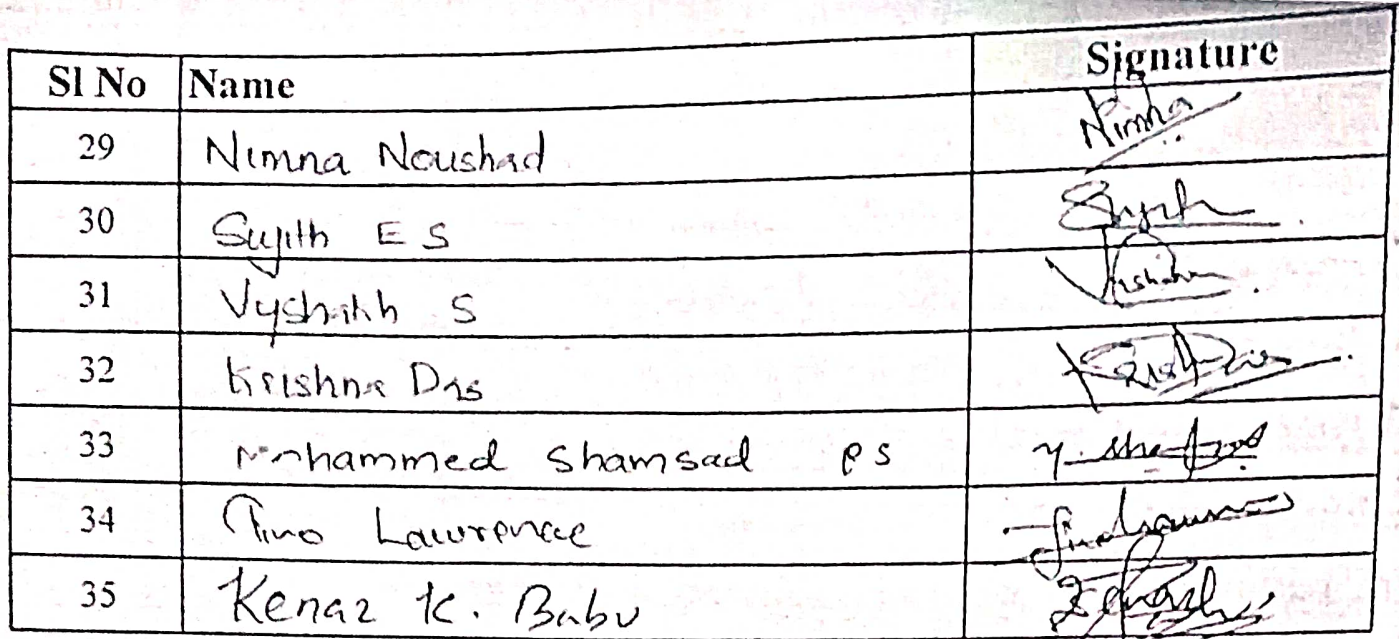 Sl No Name Signature
29 Nimna Noushad Nimna
30 Sujith E S
31 Vyshakh S
32 Krishna Das
33 Mohammed Shamsad P S
34 Tino Lawrence
35 Kenaz K. Babu